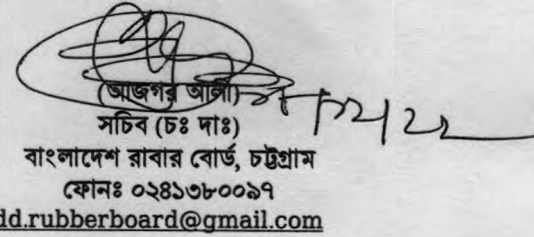 (আজগর আলী)
সচিব (চঃ দাঃ)
বাংলাদেশ রাবার বোর্ড, চট্টগ্রাম
ফোনঃ ০২৪১৩৮০০৯৭
dd.rubberboard@gmail.com